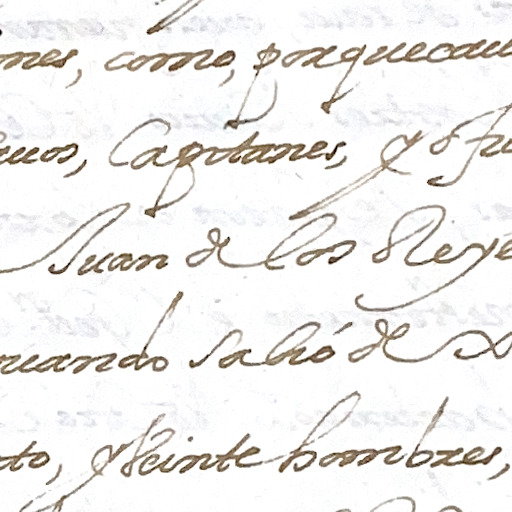 nes, como, porque cau
Capitanes, y
Juan de los Reye
quando salió de
to, y veinte hombres,